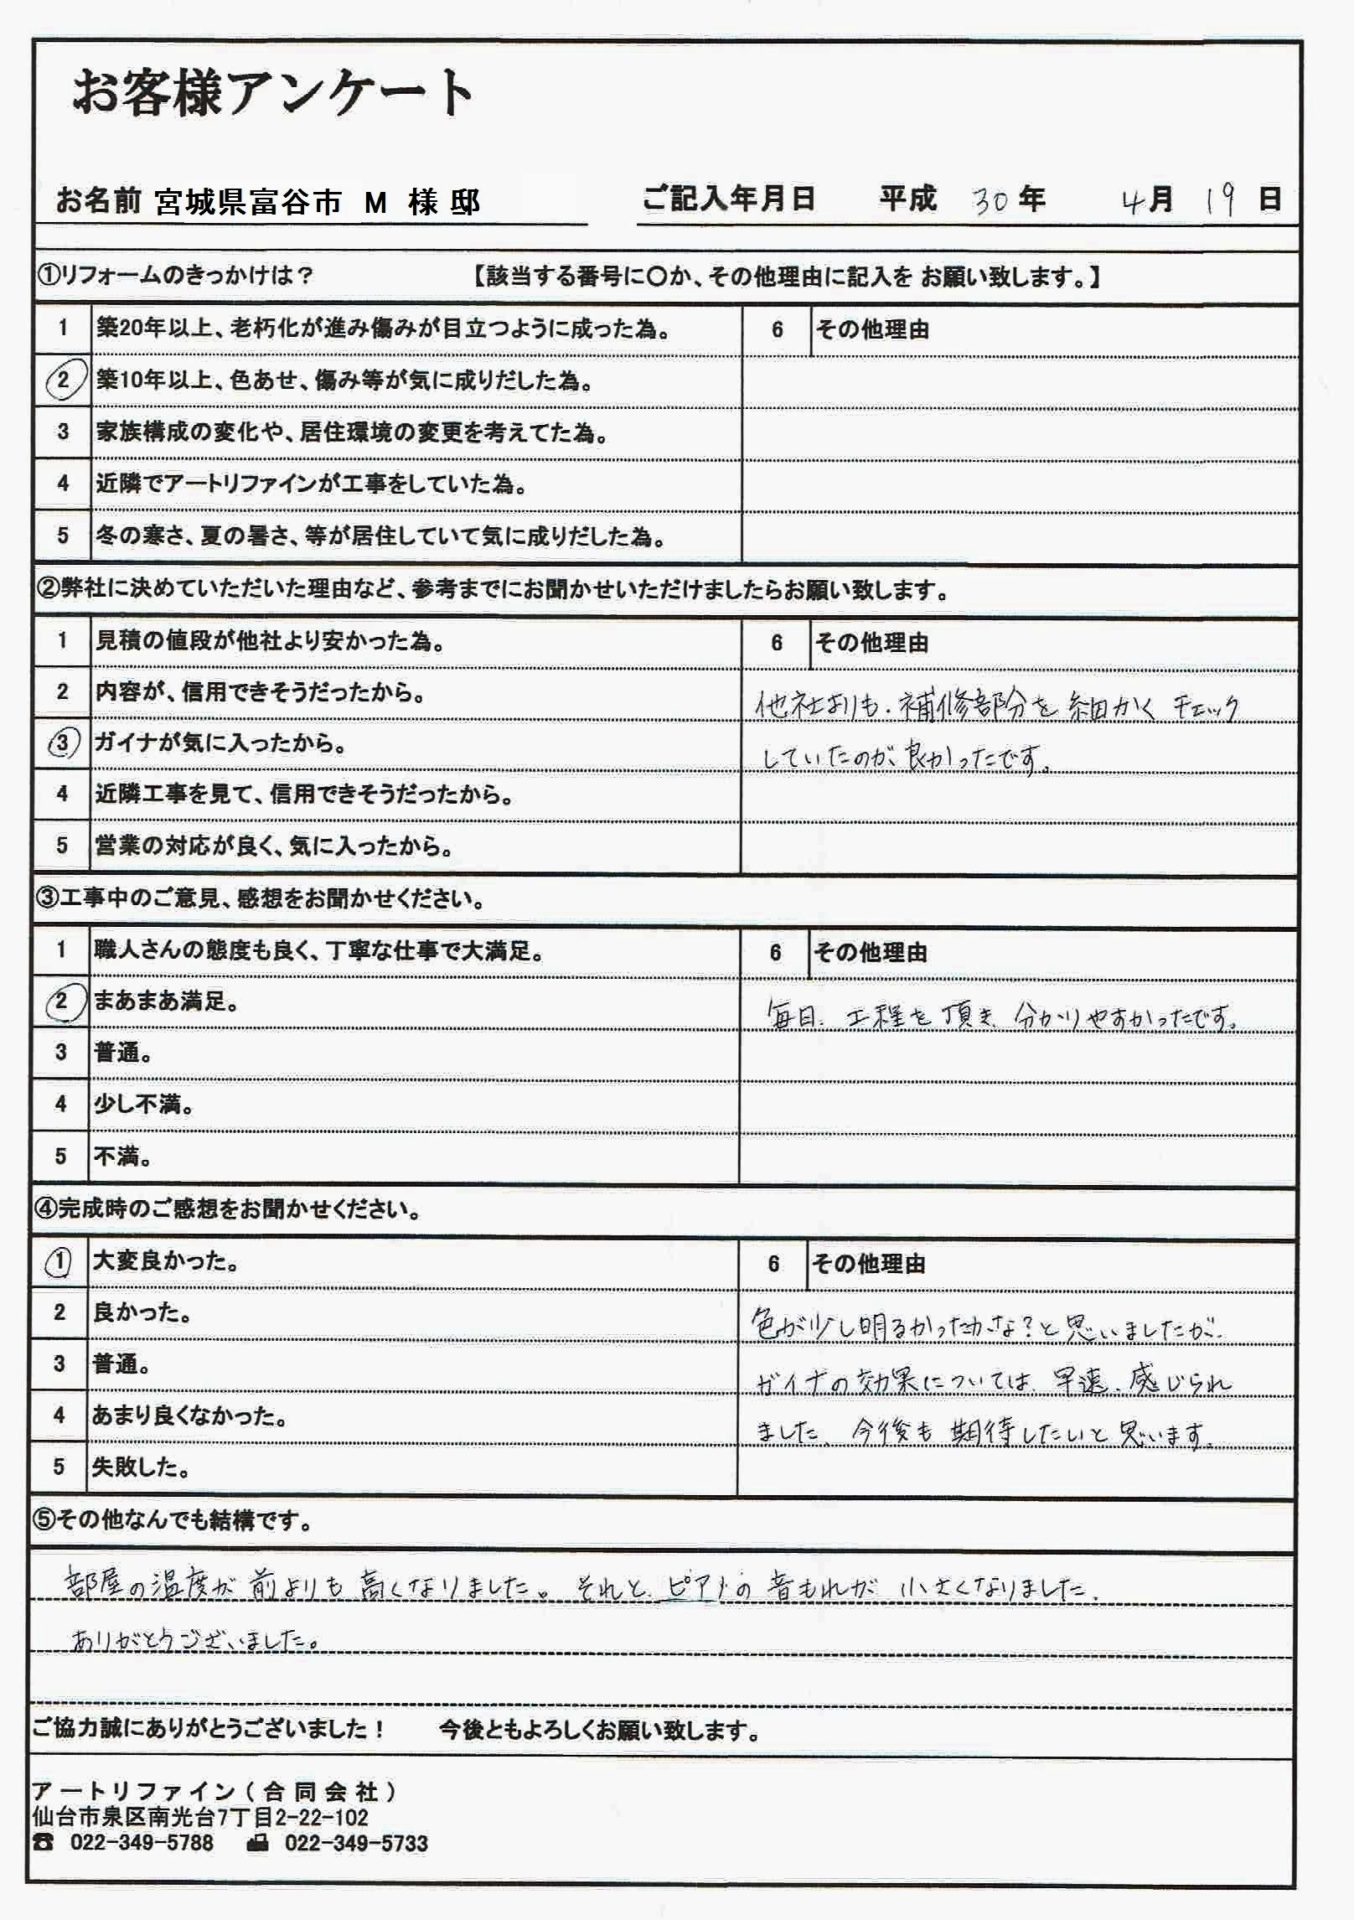 お客様アンケート
お名前 宮城県富谷市 M 様 邸 ご記入年月日 平成 30 年 4 月 19 日
①リフォームのきっかけは? 【該当する番号に〇か、その他理由に記入を お願い致します。】
1 築20年以上、老朽化が進み傷みが目立つように成った為。 6 その他理由
2 築10年以上、色あせ、傷み等が気に成りだした為。
3 家族構成の変化や、居住環境の変更を考えてた為。
4 近隣でアートリファインが工事をしていた為。
5 冬の寒さ、夏の暑さ、等が居住していて気に成りだした為。
②弊社に決めていただいた理由など、参考までにお聞かせいただけましたらお願い致します。
1 見積の値段が他社より安かった為。 6 その他理由
2 内容が、信用できそうだったから。
他社よりも、補修部分を細かくチェック
3 ガイナが気に入ったから。
していたのが、良かったです。
4 近隣工事を見て、信用できそうだったから。
5 営業の対応が良く、気に入ったから。
③工事中のご意見、感想をお聞かせください。
1 職人さんの態度も良く、丁寧な仕事で大満足。 6 その他理由
2 まあまあ満足。
毎日、工程を頂き、分かりやすかったです。
3 普通。
4 少し不満。
5 不満。
④完成時のご感想をお聞かせください。
1 大変良かった。 6 その他理由
2 良かった。
色が少し明るかったかな?と思いましたが、
3 普通。
ガイナの効果については、早速、感じられ
4 あまり良くなかった。
ました、今後も期待したいと思います。
5 失敗した。
⑤その他なんでも結構です。
部屋の温度が前よりも高くなりました。それと、ピアノの音もれが小さくなりました、
ありがとうございました。
ご協力誠にありがとうございました! 今後ともよろしくお願い致します。
アートリファイン(合同会社)
仙台市泉区南光台7丁目2-22-102
☎ 022-349-5788 📠 022-349-5733